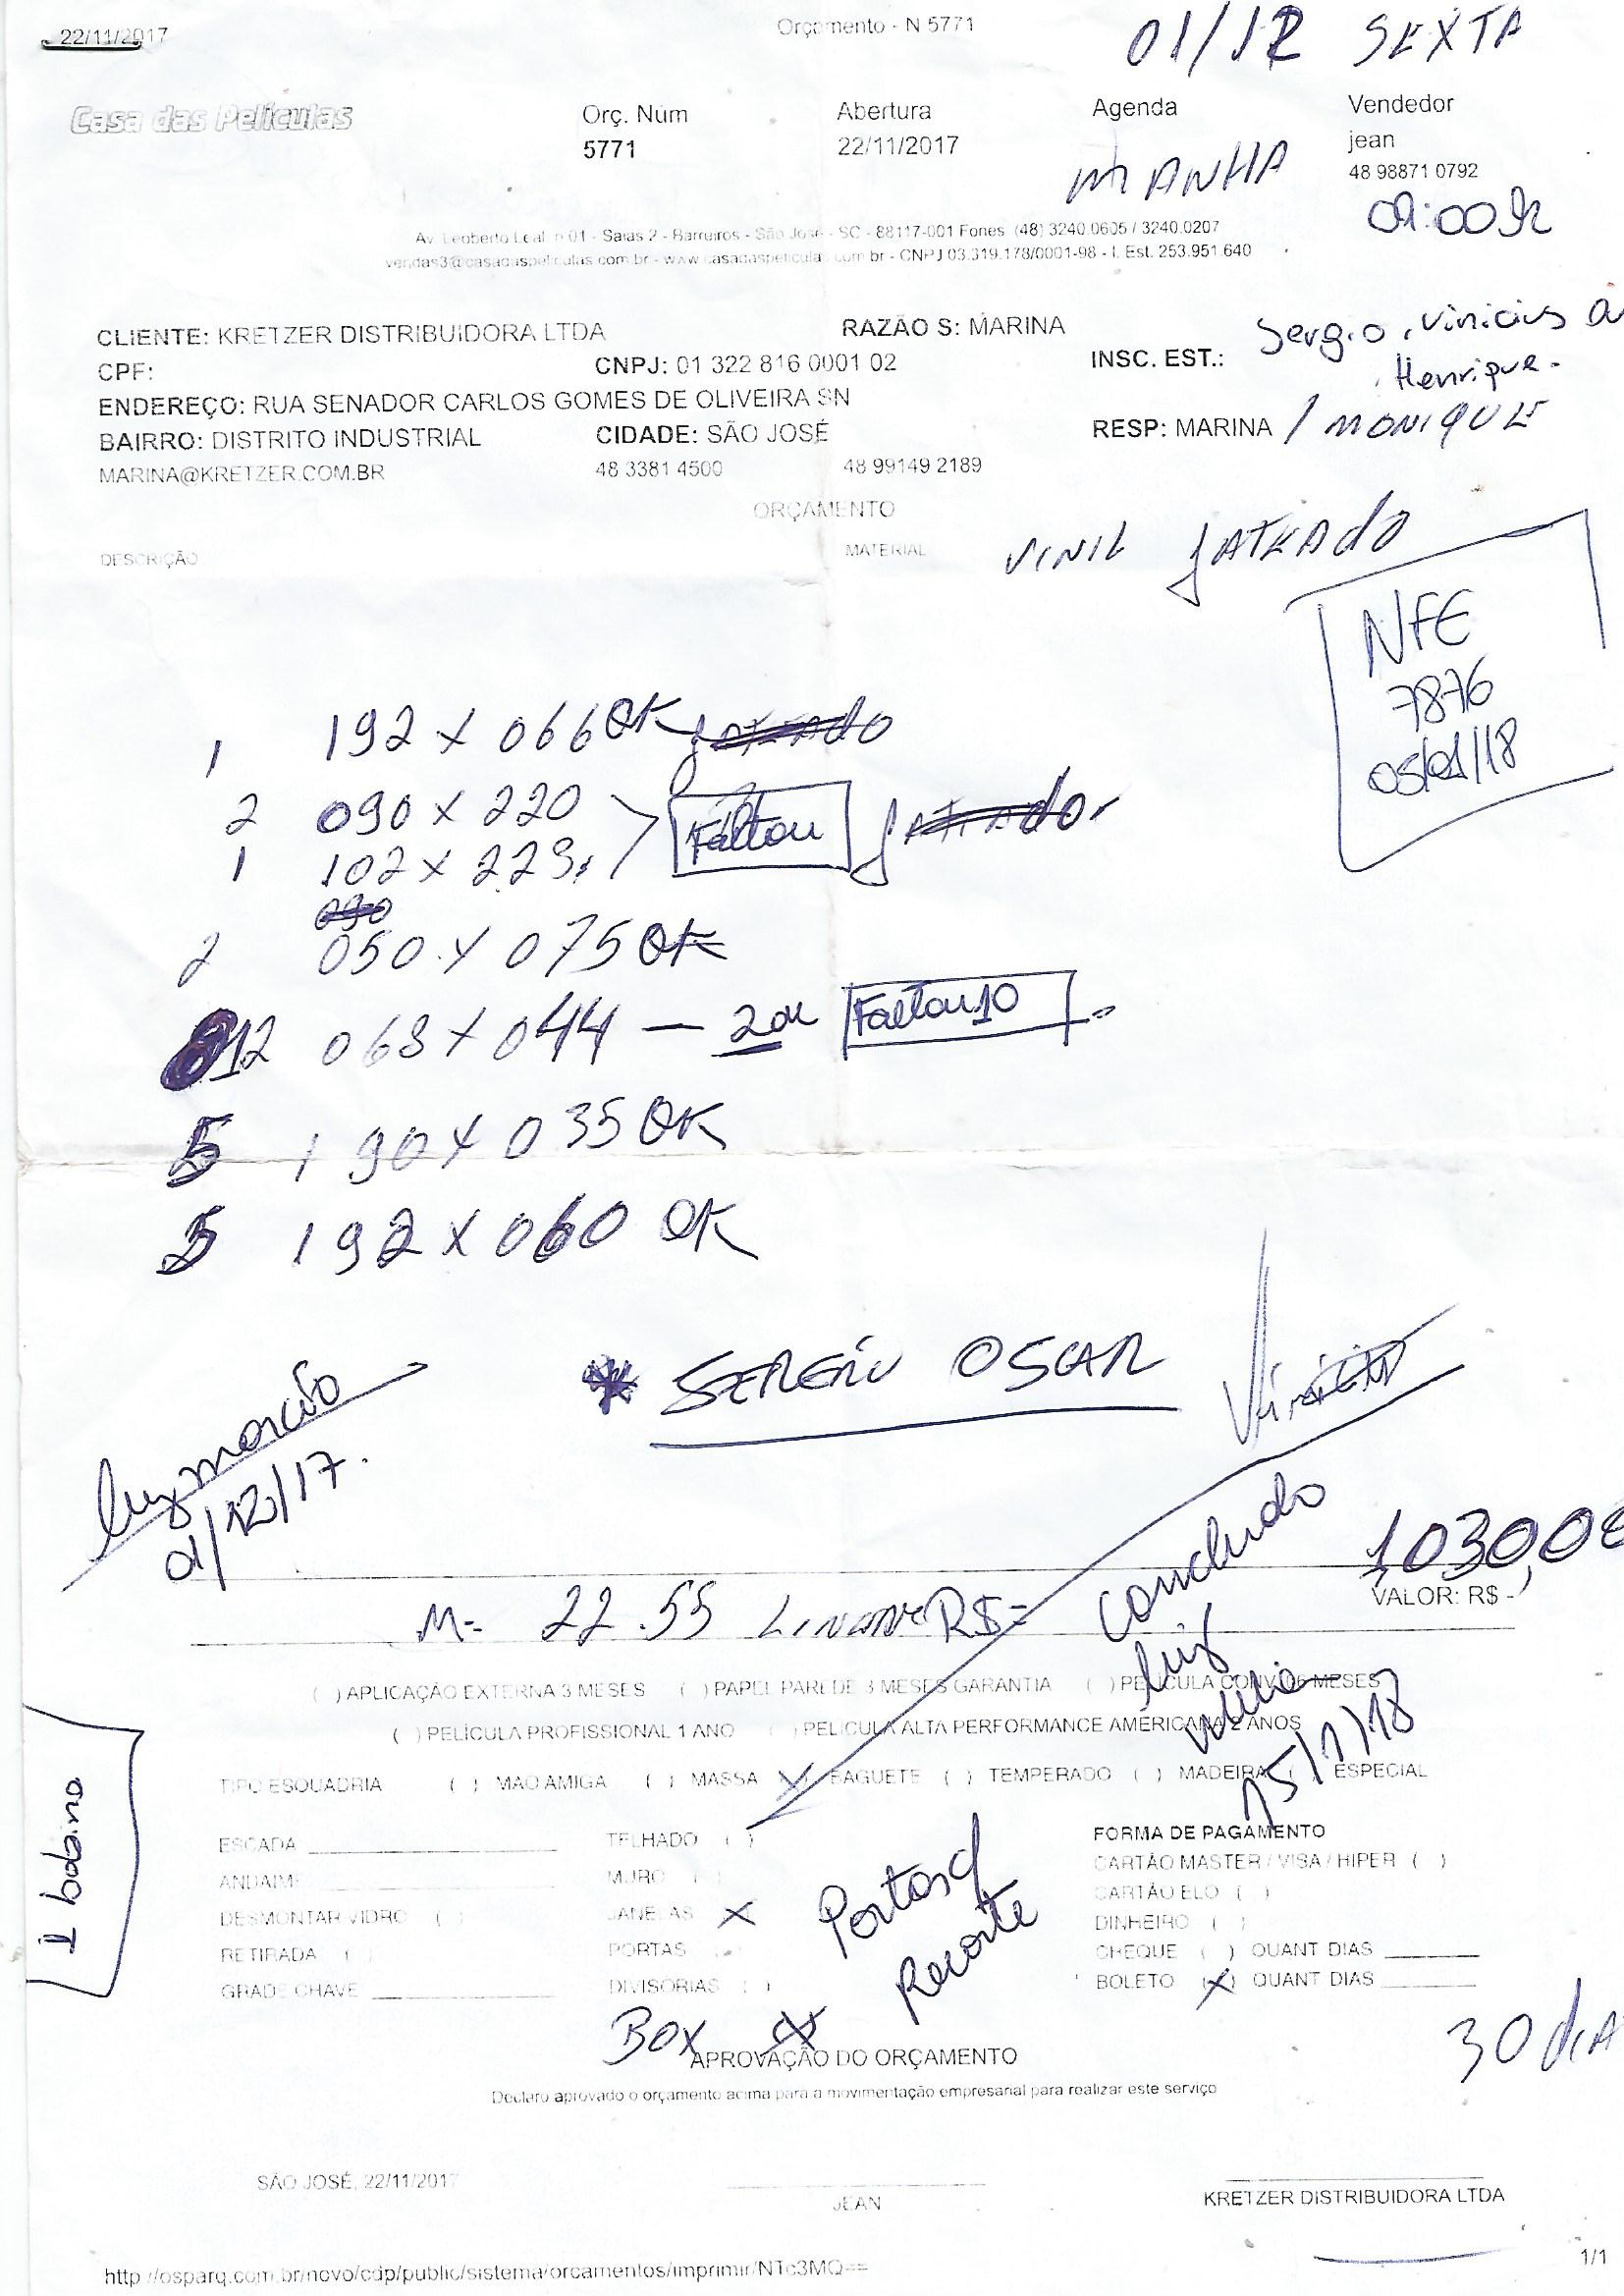 22/11/2017
Orçamento - N 5771
01/12 SEXTA
Casa das Películas
Orç. Núm
Abertura
Agenda
Vendedor
5771
22/11/2017
MANHA
jean
48 98871 0792
09:00h
Av. Leoberto Leal, n 01 - Salas 2 - Barreiros - São José - SC - 88117-001 Fones (48) 3240.0605 / 3240.0207
vendas3@casadaspeliculas.com.br - www.casadaspeliculas.com.br - CNPJ 03.319.178/0001-98 - I. Est. 253.951.640
CLIENTE: KRETZER DISTRIBUIDORA LTDA
RAZÃO S: MARINA
Sergio, Vinicius
CPF:
CNPJ: 01 322 816 0001 02
INSC. EST.:
Henrique.
ENDEREÇO: RUA SENADOR CARLOS GOMES DE OLIVEIRA SN
BAIRRO: DISTRITO INDUSTRIAL
CIDADE: SÃO JOSÉ
RESP: MARINA / MONIQUE
MARINA@KRETZER.COM.BR
48 3381 4500
48 99149 2189
ORÇAMENTO
DESCRIÇÃO
MATERIAL
VINIL JATEADO
NFE
7876
05/01/18
1 192 X 066 OK JATEADO
2 090 X 220
Faltou
1 102 X 229
2 050 X 075 OK
12 068 X 044 - 2 ok Faltou 10
5 190 X 035 OK
5 192 X 060 OK
* SERGIO OSCAR
01/12/17.
concluido
luiz
15/1/18
1030,00
VALOR: R$ -
M= 22.55 R$=
( ) APLICAÇÃO EXTERNA 3 MESES ( ) PAPEL PAREDE 3 MESES GARANTIA ( ) PELÍCULA CONV. 06 MESES
( ) PELÍCULA PROFISSIONAL 1 ANO ( ) PELICULA ALTA PERFORMANCE AMERICANA 2 ANOS
TIPO ESQUADRIA ( ) MAO AMIGA ( ) MASSA (X) BAGUETE ( ) TEMPERADO ( ) MADEIRA ( ) ESPECIAL
ESCADA
TELHADO ( )
FORMA DE PAGAMENTO
ANDAIME
MURO ( )
CARTÃO MASTER / VISA / HIPER ( )
DESMONTAR VIDRO ( )
JANELAS X
CARTÃO ELO ( )
RETIRADA ( )
PORTAS
DINHEIRO ( )
GRADE CHAVE
DIVISORIAS ( )
CHEQUE ( ) QUANT DIAS
BOLETO (X) QUANT DIAS
30 dIA
Portas c/
Recorte
BOX X
APROVAÇÃO DO ORÇAMENTO
Declaro aprovado o orçamento acima para a movimentação empresarial para realizar este serviço
SÃO JOSÉ, 22/11/2017
JEAN
KRETZER DISTRIBUIDORA LTDA
http://osparq.com.br/novo/cdp/public/sistema/orcamentos/imprimir/NTc3MQ==
1/1